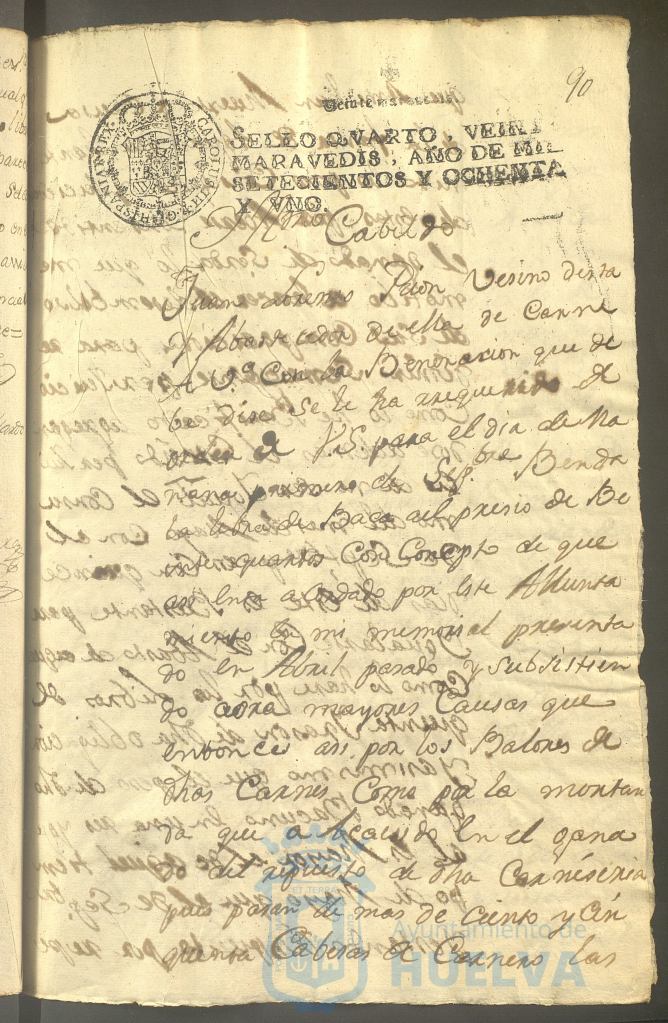 90
Veinte maravedis
SELLO QVARTO, VEINTE
MARAVEDIS, AÑO DE MIL
SETECIENTOS Y OCHENTA
Y VNO.
CAROLUS III D G HISPANIAR REX
Cabildo
Juan Lorenzo Vesino desta
Abastecedor de ella de Carne
A Vª Con la Benerasion que de
be dise se le ha rrequerido de
orden de V.S. para el dia de Ma
ñana primero de Sepbre Benda
la libra de Baca al presio de Be
inte quartos Con Concepto de que
asi se acordado por este Allunta
miento En mi memorial presenta
do en Abril pasado y subsistien
do aora mayores Causas que
entonce asi por los Balores de
dhas Carnes Como por la mortan
da que a Acaesido En el gana
do del repuesto de dha Carniseria
pues pasan de mas de ciento y cin
quenta Cabesas de Carnero las
Ayuntamiento de
HUELVA